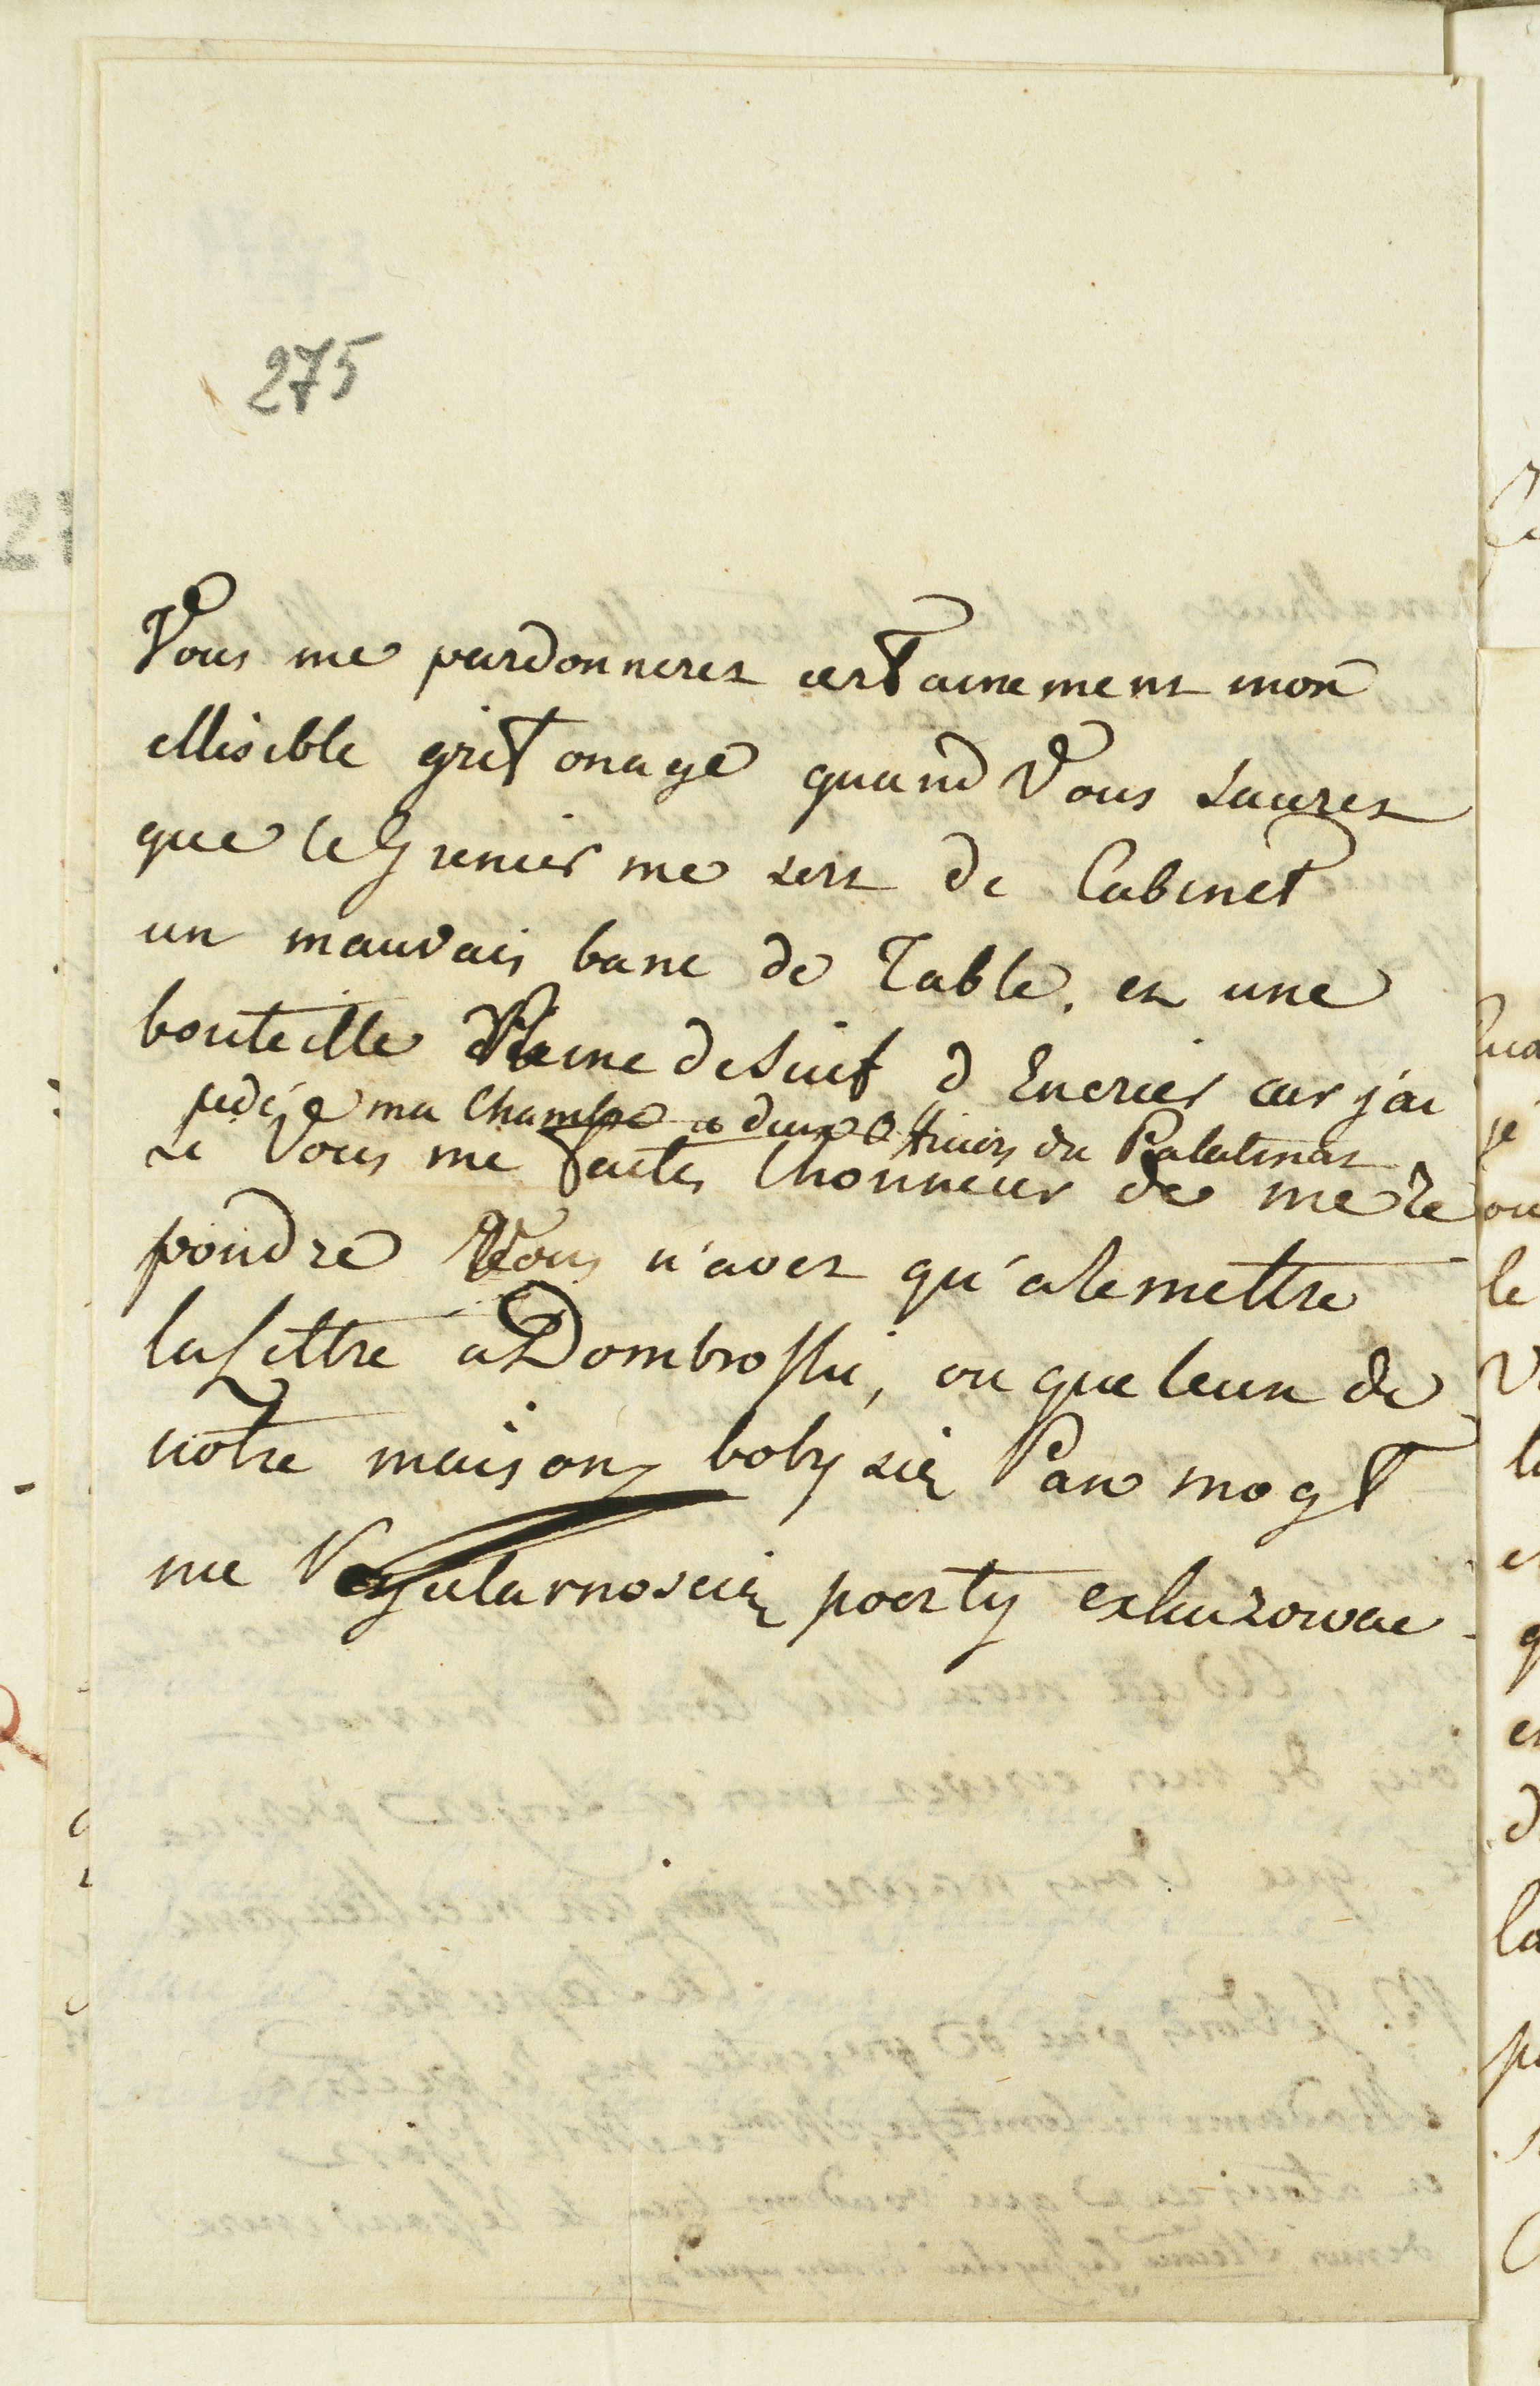 275
Vous me pardonneres certainement mon
illisible grifonage quand Vous saures
que le Grenier me sert de Cabinet
un mauvais banc de Table, et une
bouteille pleine de Suif d'Encrier car j'ai
cedé ma Chambre a deux Officiers du Palatinat
si Vous me faites l'honneur de me re
pondre Vous n'aves qu'a remettre
la Lettre a Dombroski, ou quelcun de
notre maison boby sie Pan mogł
na Regularnoscią poczty exkuzowac